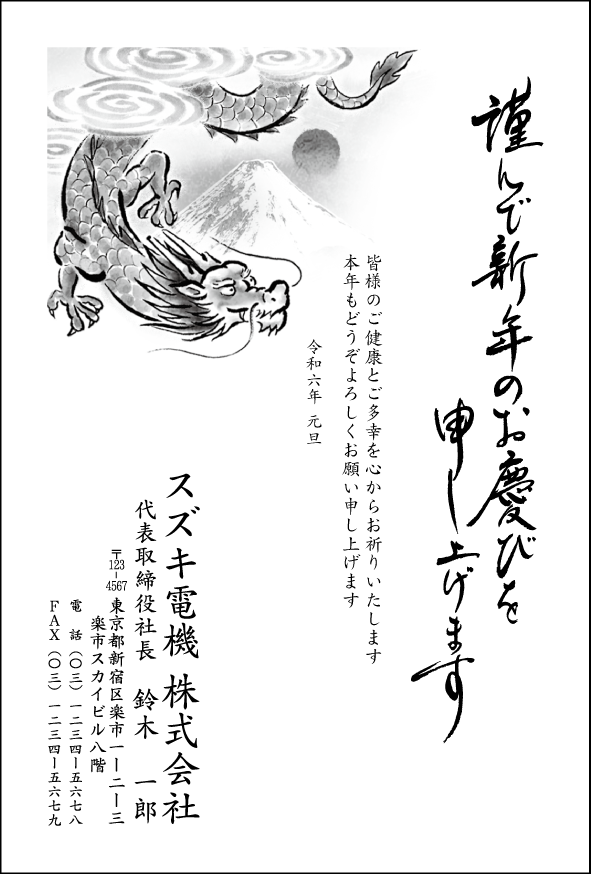 謹んで新年のお慶びを
申し上げます
皆様のご健康とご多幸を心からお祈りいたします
本年もどうぞよろしくお願い申し上げます
令和六年 元旦
スズキ電機 株式会社
代表取締役社長 鈴木 一郎
〒123-4567 東京都新宿区楽市一ー二ー三
楽市スカイビル八階
電 話(〇三)一二三四ー五六七八
FAX(〇三)一二三四ー五六七九